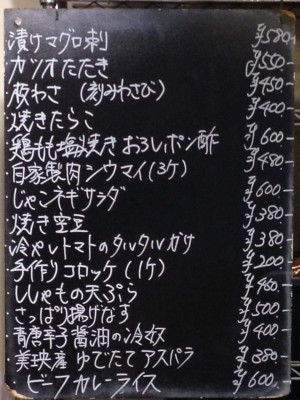 ・漬けマグロ刺 ¥580-
・カツオたたき ¥550-
・板わさ (刻みわさび) ¥450
・焼きたらこ ¥400
・鶏もも塩焼き おろしポン酢 ¥600-
・自家製肉シウマイ(3ケ) ¥480-
・じゃこネギサラダ ¥600-
・焼き空豆 ¥380-
・冷やしトマトのタルタルがけ ¥380-
・手作りコロッケ(1ケ) ¥200-
・ししゃもの天ぷら ¥450-
・さっぱり揚げなす ¥500-
・青唐辛子醤油の冷奴 ¥400-
・美瑛産 ゆでたて アスパラ ¥380-
・ビーフカレーライス ¥600-